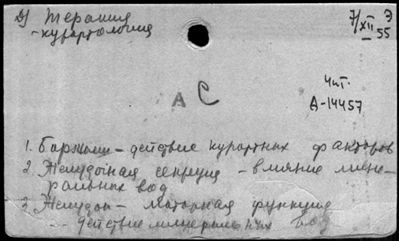 д) Терапия
- курортология
7/XII 55
Э
А С
Чит.
А-14457
1. Боржоми - действие курортных факторов
2. Желудочная секреция - влияние мине-
ральных вод
3. Желудок - моторная функция
-- действие минеральных вод